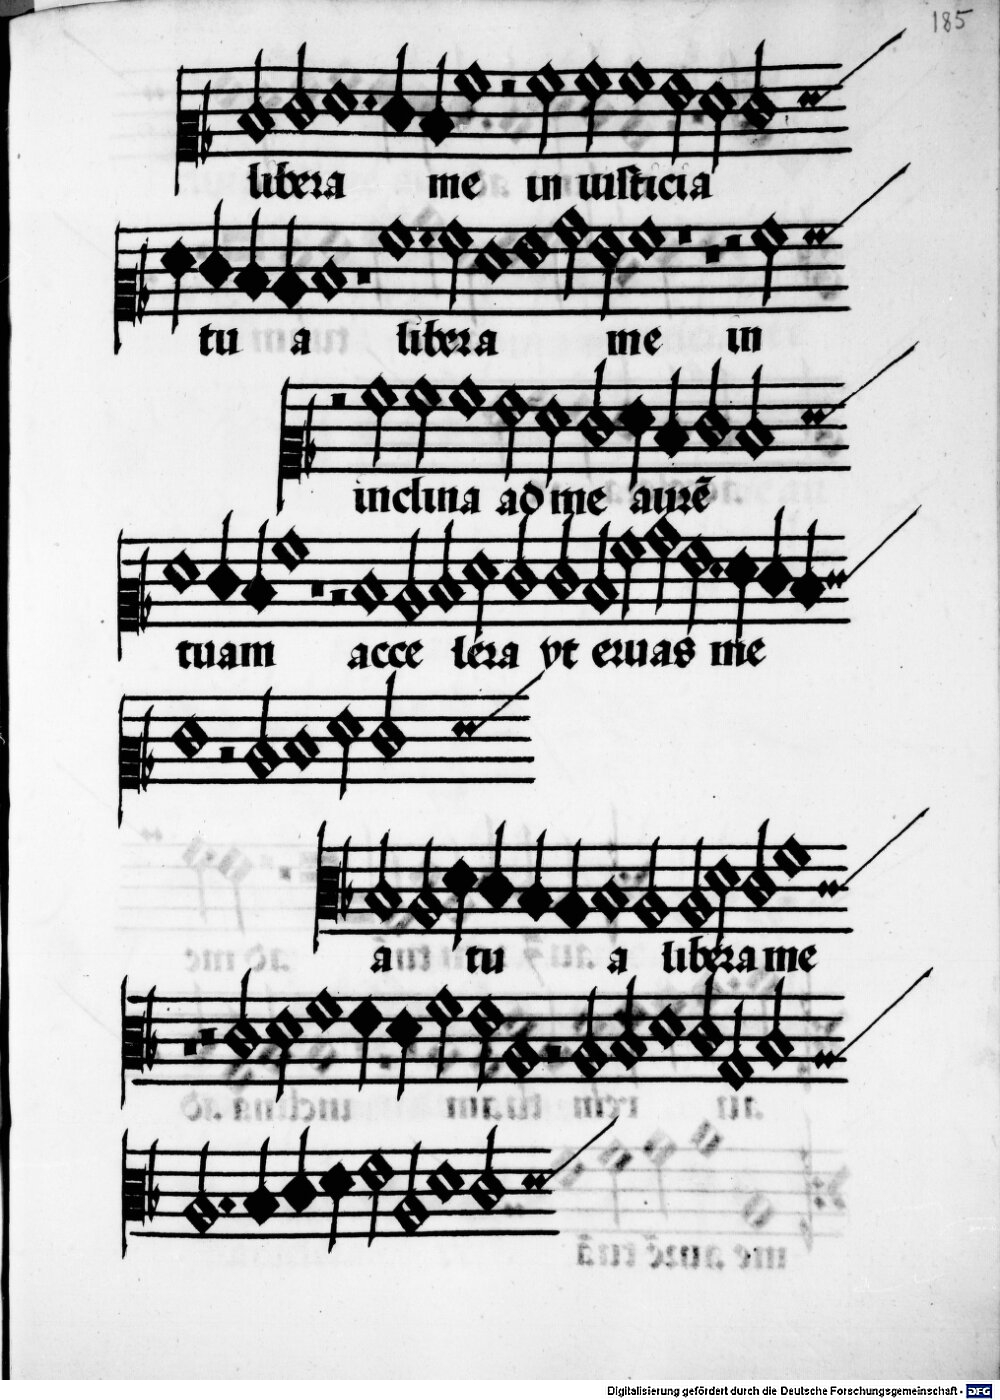 185
libera me in iusticia
tu a libera me in
inclina ad me aurē
tuam acce lera vt eruas me
a tu a libera me
Digitalisierung gefördert durch die Deutsche Forschungsgemeinschaft - DFG